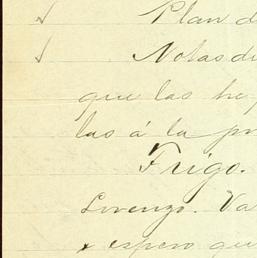 Plan d
Notas de
que las he
las á la pr
Trigo.
Lorenzo. Va
y espero qu